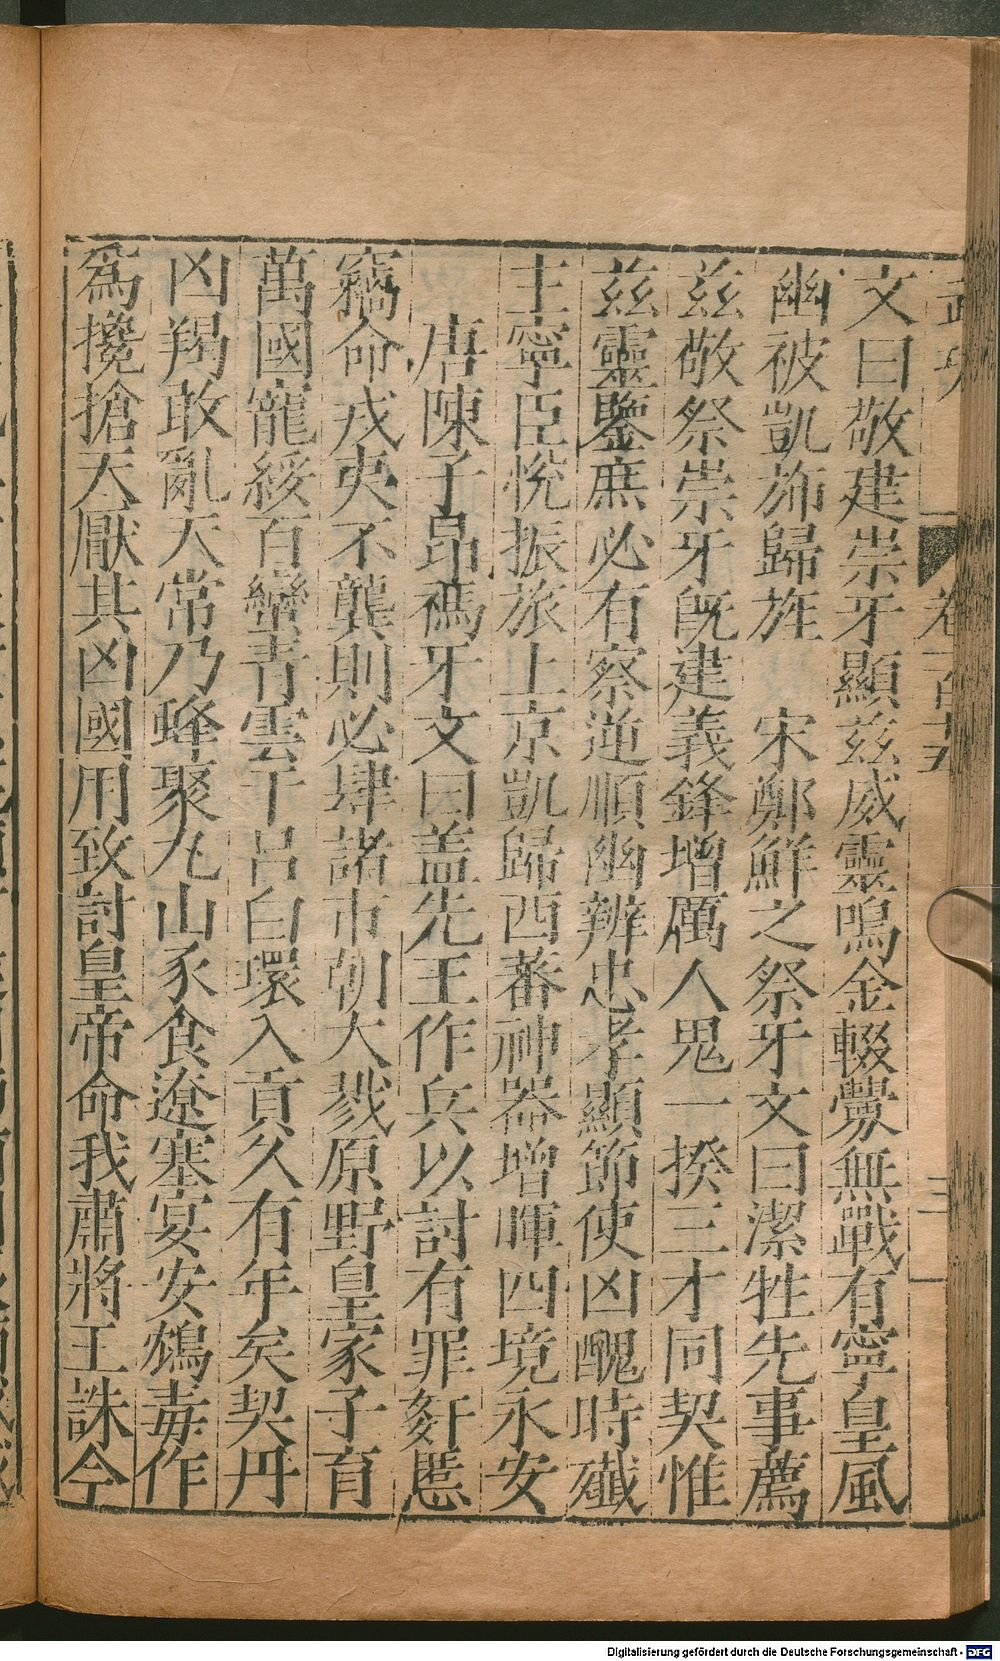 文曰敬建崇牙顯兹威靈鳴金輟舋無戰有寧皇風
幽被凱斾歸旌　宋鄭鮮之祭牙文曰潔牲先事薦
兹敬祭崇牙旣建義鋒增厲人鬼一揆三才同契惟
兹靈鑒庶必有察逆順幽辨忠孝顯節使凶醜時殱
主寧臣悅振旅上京凱歸西蕃神器增暉四境永安
唐陳子昂禡牙文曰盖先王作兵以討有罪姧慝
竊命戎夷不龔則必肆諸市朝大戮原野皇家子育
萬國寵綏百蠻青雲干呂白環入貢久有年矣契丹
凶羯敢亂天常乃蜂聚丸山豕食遼塞宴安鴆毒作
爲攙搶天厭其凶國用致討皇帝命我肅將王誅今
三
Digitalisierung gefördert durch die Deutsche Forschungsgemeinschaft - DFG